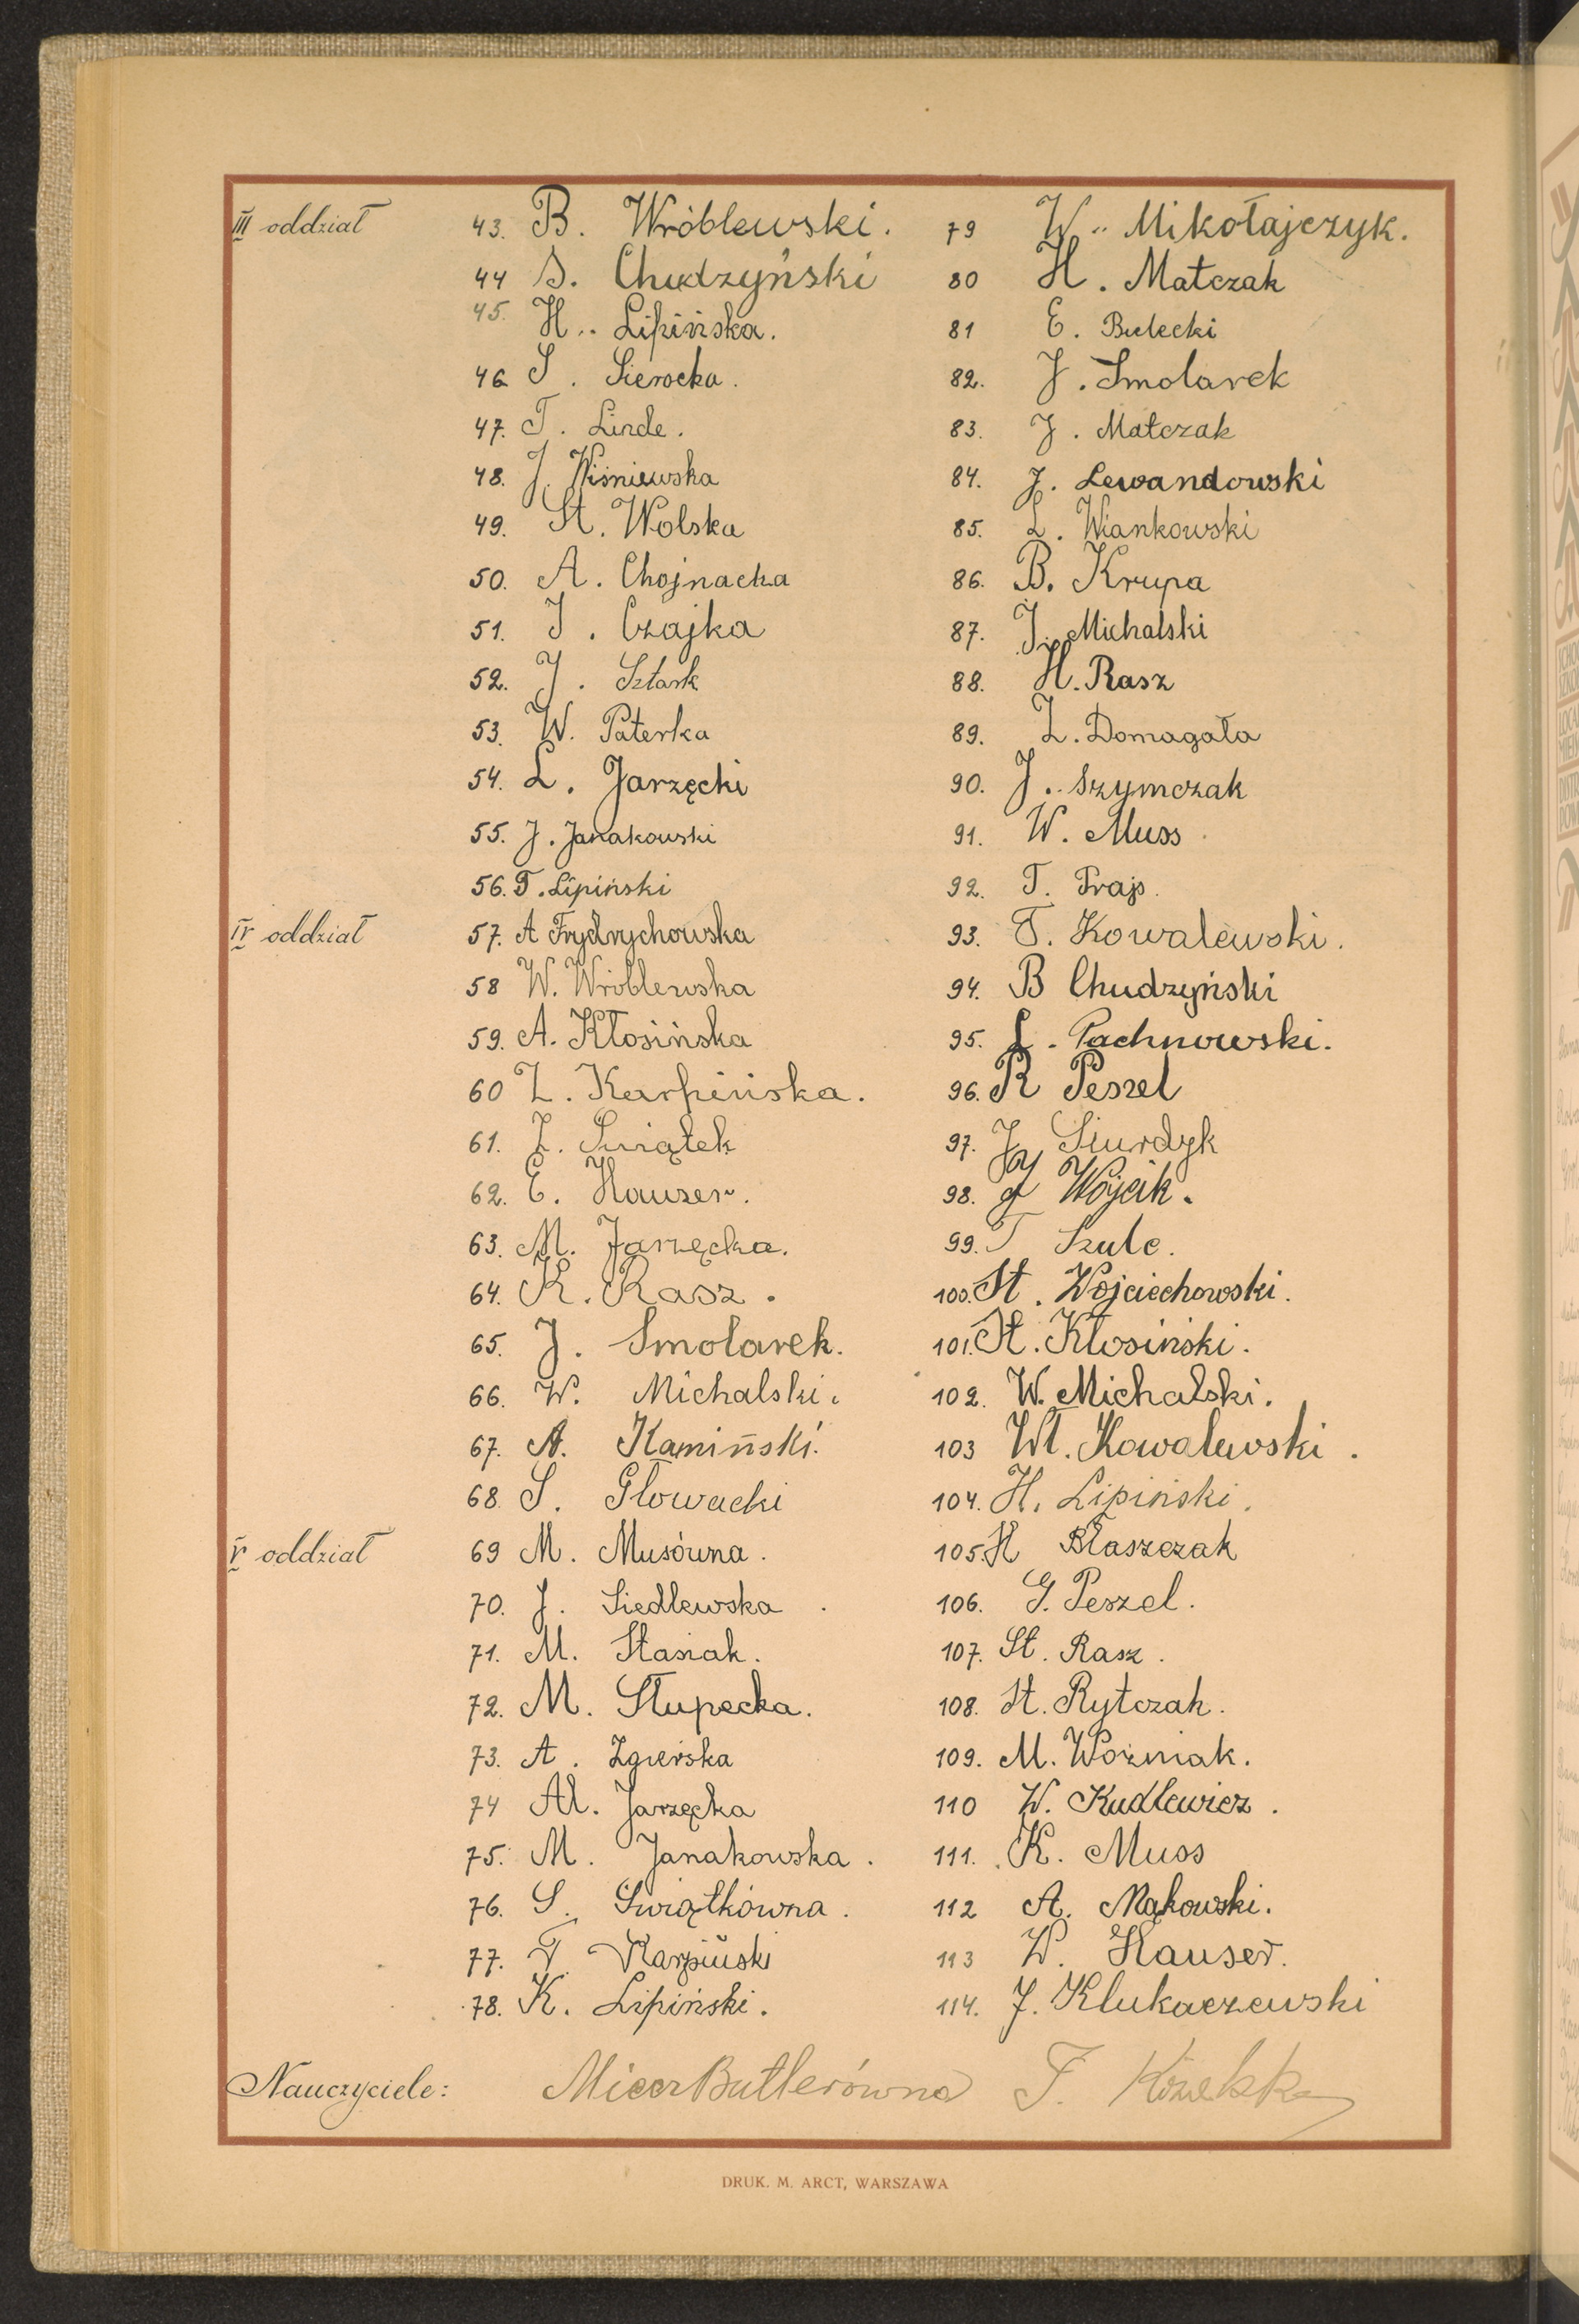 III oddział
43. B. Wróblewski.
44 S. Chudzyński
45. H.. Lipińska.
46 S. Sierocka.
47. T. Linde.
48. J. Wiśniewska
49. St. Wolska
50. A. Chojnacka
51. J. Czajka
52. J. Sztark
53. W. Paterka
54. L. Jarzęcki
55. J. Janakowski
56. T. Lipiński
IV oddział
57. A Frydrychowska
58 W. Wróblewska
59. A. Kłosińska
60 Z. Karpińska.
61. Z. Świątek
62. E. Hauser.
63. M. Jarzęcka.
64. K. Rasz.
65. J. Smolarek.
66. W. Michalski.
67. A. Kamiński.
68. S. Głowacki
V oddział
69 M. Musówna.
70. J. Siedlewska.
71. M. Stasiak.
72. M. Słupecka.
73. A. Zgierska
74 Al. Jarzęcka
75. M. Janakowska.
76. S. Świątkówna.
77. T. Karpiński
78. K. Lipiński.
79 W.. Mikołajczyk.
80 H. Matczak
81 E. Bulecki
82. J. Smolarek
83. J. Matczak
84. J. Lewandowski
85. L. Wiankowski
86. B. Krupa
87. J. Michalski
88. H. Rasz
89. Z. Domagała
90. J.. Szymczak
91. W. Muss
92. T. Prajs.
93. T. Kowalewski.
94. B Chudzyński
95. L. Pachnowski.
96. R Peszel
97. J Siurdyk
98. J Wójcik.
99. T Szulc.
100. St. Wojciechowski.
101. St. Kłosiński.
102. W. Michalski.
103 Wł. Kowalewski.
104. H. Lipiński.
105. H Błaszczak
106. G. Peszel.
107. St. Rasz.
108. St. Rytczak.
109. M. Woźniak.
110 W. Kudlewicz.
111. K. Muss
112 A. Mąkowski.
113 W. Hauser.
114. J. Klukaczewski
Nauczyciele: Butlerówna F.
DRUK. M. ARCT, WARSZAWA